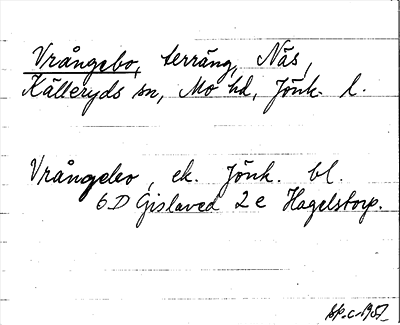 Vrångebo, terräng, Näs,
Källeryds sn, Mo hd, Jönk. l.
Vrångebo, ek. Jönk. bl.
6D Gislaved 2e Hagelstorp.